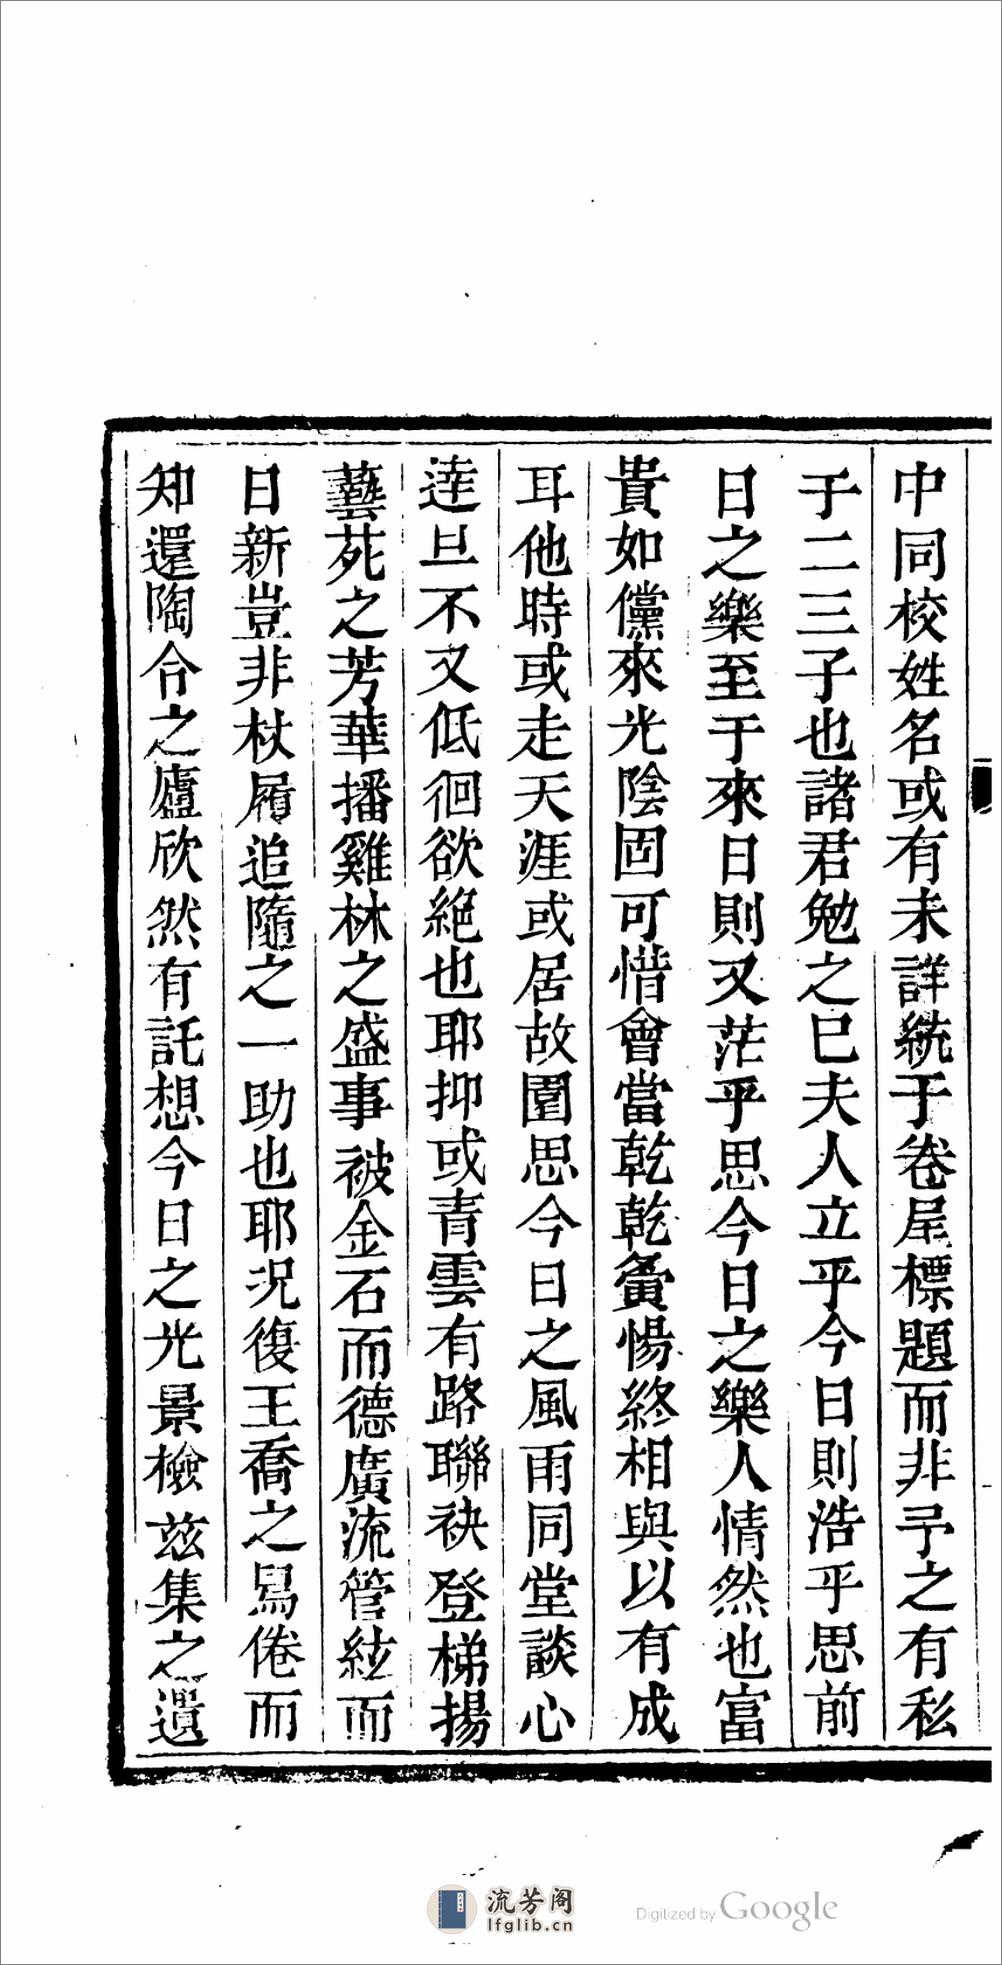 中同校姓名或有未詳統于卷尾標題而非予之有私
于二三子也諸君勉之已夫人立乎今日則浩乎思前
日之樂至于來日則又茫乎思今日之樂人情然也富
貴如儻來光陰固可惜會當乾乾夤惕終相與以有成
耳他時或走天涯或居故園思今日之風雨同堂談心
達旦不又低徊欲絕也耶抑或青雲有路聯袂登梯揚
藝苑之芳華播雞林之盛事被金石而德廣流管絃而
日新豈非杖履追隨之一助也耶況復王喬之舄倦而
知還陶令之廬欣然有託想今日之光景檢茲集之遺
流芳阁
lfglib.cn
Digitized by Google